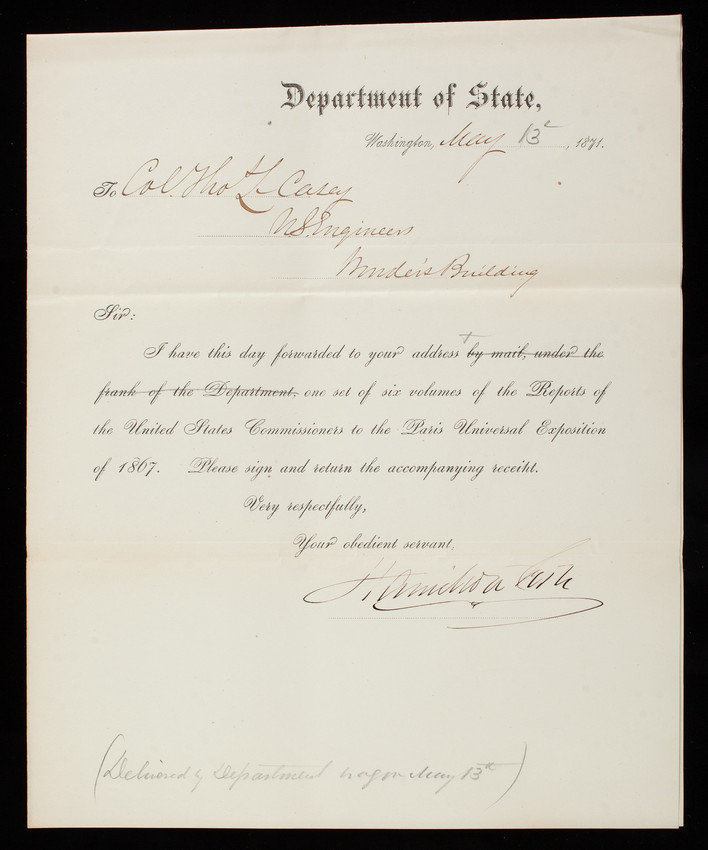 Department of State,
Washington, May 13th, 1871.
To Col. Tho L Casey
U.S. Engineers
Winder's Building
Sir:
I have this day forwarded to your address by mail, under the
frank of the Department, one set of six volumes of the Reports of
the United States Commissioners to the Paris Universal Exposition
of 1867. Please sign and return the accompanying receipt.
Very respectfully,
Your obedient servant,
Hamilton Fish
(Delivered by Department wagon May 13th)